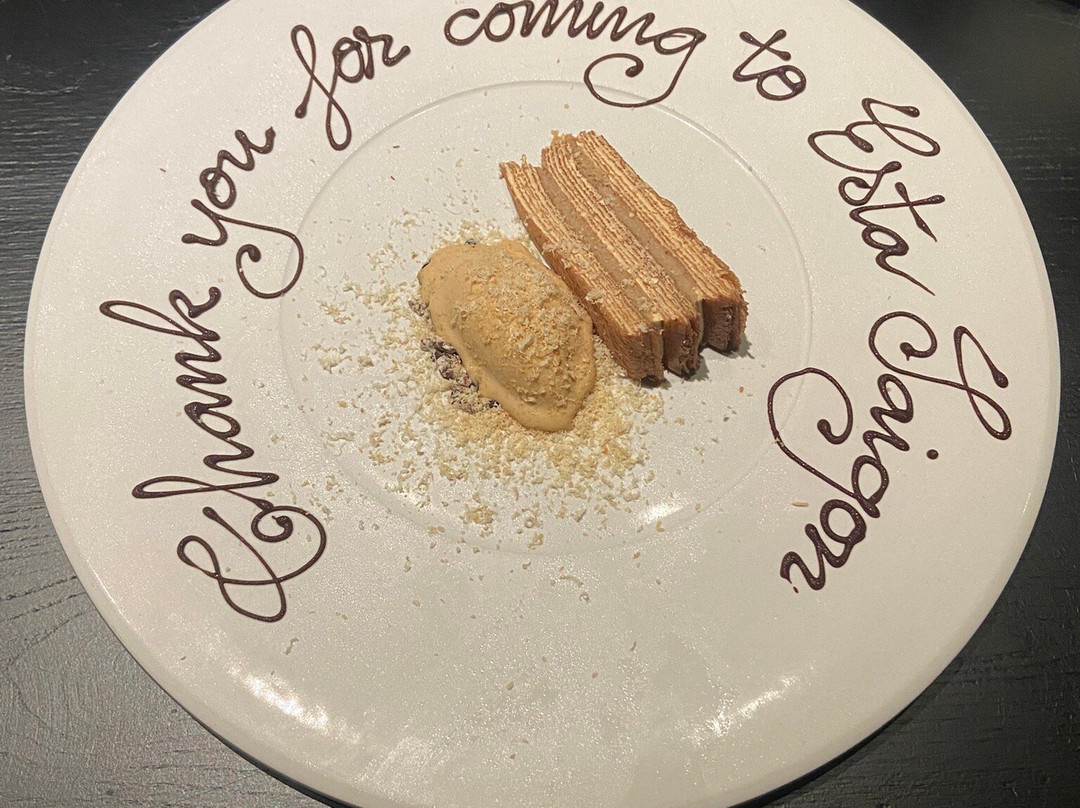 Thank you for coming to Esta Saigon